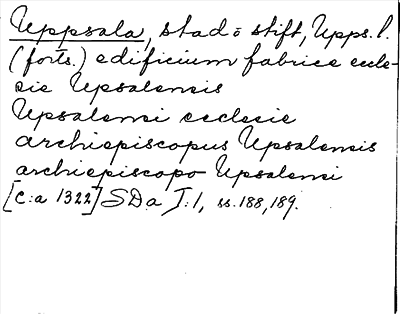 Uppsala, stad o stift, Upps. l.
(forts.) edificium fabrice eccle-
sie Upsalensis
Upsalensi ecclesie
archiepiscopus Upsalensis
archiepiscopo Upsalensi
[c:a 1322] SDa I:1, ss. 188, 189.